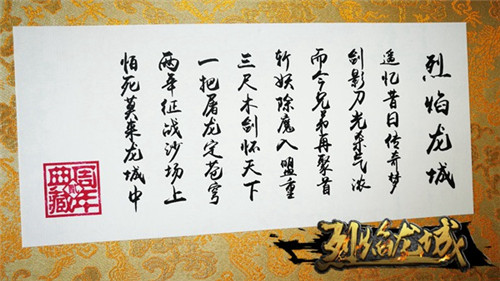 烈焰龙城
遥忆昔日传奇梦
剑影刀光杀气浓
而今兄弟再聚首
斩妖除魔入盟重
三尺木剑怀天下
一把屠龙定苍穹
两年征战沙场上
怕死莫来龙城中
周年
典藏
烈焰龙城